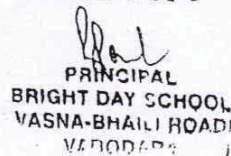 PRINCIPAL
BRIGHT DAY SCHOOL
VASNA-BHAILI ROAD
VADODARA